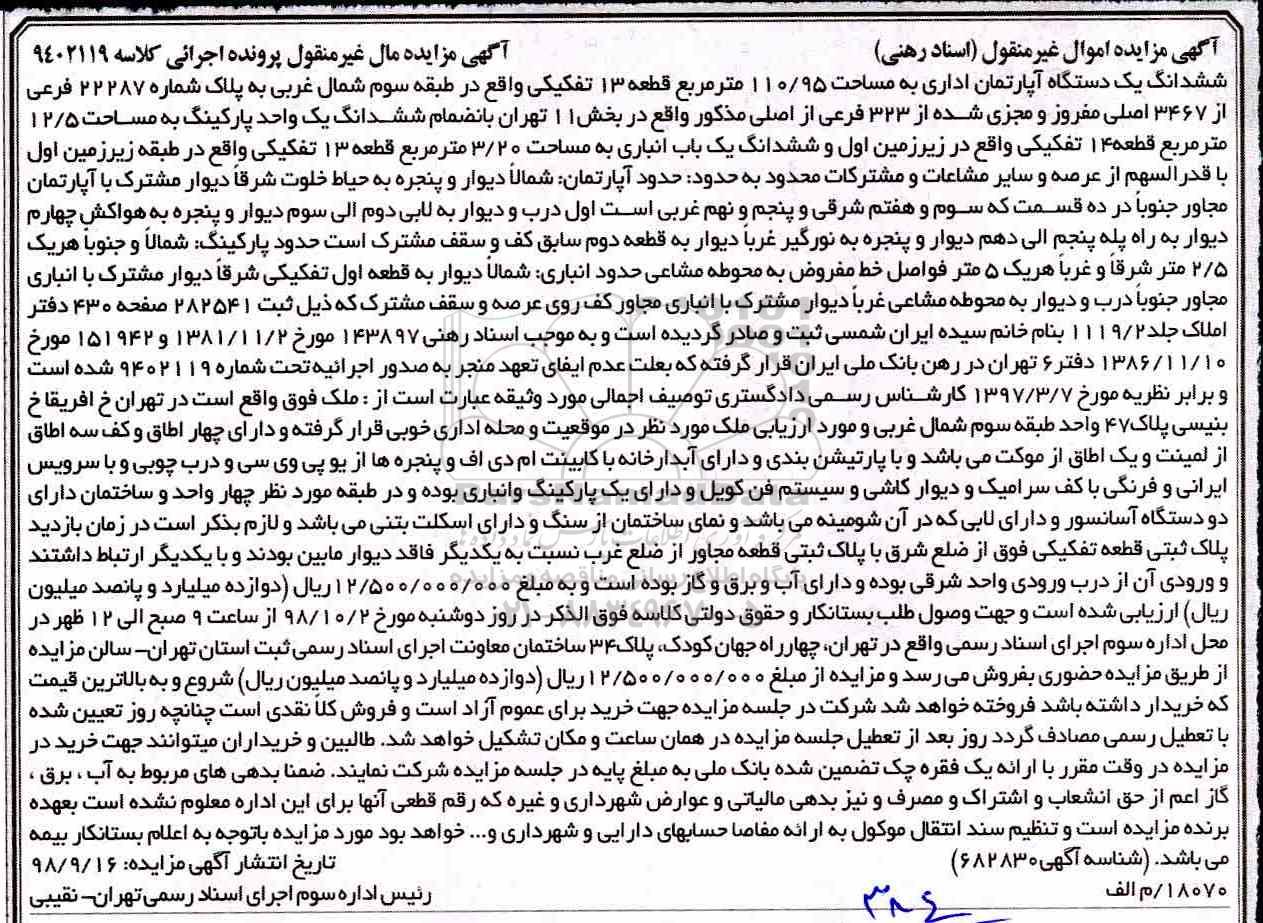 آگهی مزایده اموال غیرمنقول (اسناد رهنی) آگهی مزایده مال غیرمنقول پرونده اجرائی کلاسه ۹۴۰۲۱۱۹
ششدانگ یک دستگاه آپارتمان اداری به مساحت ۱۱۰/۹۵ مترمربع قطعه ۱۳ تفکیکی واقع در طبقه سوم شمال غربی به پلاک شماره ۲۲۲۸۷ فرعی
از ۳۴۶۷ اصلی مفروز و مجزی شده از ۳۲۳ فرعی از اصلی مذکور واقع در بخش ۱۱ تهران بانضمام ششدانگ یک واحد پارکینگ به مساحت ۱۲/۵
مترمربع قطعه۱۴ تفکیکی واقع در زیرزمین اول و ششدانگ یک باب انباری به مساحت ۳/۲۰ مترمربع قطعه ۱۳ تفکیکی واقع در طبقه زیرزمین اول
با قدرالسهم از عرصه و سایر مشاعات و مشترکات محدود به حدود: حدود آپارتمان: شمالاً دیوار و پنجره به حیاط خلوت شرقاً دیوار مشترک با آپارتمان
مجاور جنوباً در ده قسمت که سوم و هفتم شرقی و پنجم و نهم غربی است اول درب و دیوار به لابی دوم الی سوم دیوار و پنجره به هواکش چهارم
دیوار به راه پله پنجم الی دهم دیوار و پنجره به نورگیر غرباً دیوار به قطعه دوم سابق کف و سقف مشترک است حدود پارکینگ: شمالاً و جنوباً هریک
۲/۵ متر شرقاً و غرباً هریک ۵ متر فواصل خط مفروض به محوطه مشاعی حدود انباری: شمالاً دیوار به قطعه اول تفکیکی شرقاً دیوار مشترک با انباری
مجاور جنوباً درب و دیوار به محوطه مشاعی غرباً دیوار مشترک با انباری مجاور کف روی عرصه و سقف مشترک که ذیل ثبت ۲۸۲۵۴۱ صفحه ۴۳۰ دفتر
املاک جلد ۱۱۱۹/۲ بنام خانم سیده ایران شمسی ثبت و صادر گردیده است و به موجب اسناد رهنی ۱۴۳۸۹۷ مورخ ۱۳۸۱/۱۱/۲ و ۱۵۱۹۴۲ مورخ
۱۳۸۶/۱۱/۱۰ دفتر۶ تهران در رهن بانک ملی ایران قرار گرفته که بعلت عدم ایفای تعهد منجر به صدور اجرائیه تحت شماره ۹۴۰۲۱۱۹ شده است
و برابر نظریه مورخ ۱۳۹۷/۳/۷ کارشناس رسمی دادگستری توصیف اجمالی مورد وثیقه عبارت است از : ملک فوق واقع است در تهران خ افریقا خ
بنیسی پلاک۴۷ واحد طبقه سوم شمال غربی و مورد ارزیابی ملک مورد نظر در موقعیت و محله اداری خوبی قرار گرفته و دارای چهار اطاق و کف سه اطاق
از لمینت و یک اطاق از موکت می باشد و با پارتیشن بندی و دارای آبدارخانه با کابینت ام دی اف و پنجره ها از یو پی وی سی و درب چوبی و با سرویس
ایرانی و فرنگی با کف سرامیک و دیوار کاشی و سیستم فن کویل و دارای یک پارکینگ وانباری بوده و در طبقه مورد نظر چهار واحد و ساختمان دارای
دو دستگاه آسانسور و دارای لابی که در آن شومینه می باشد و نمای ساختمان از سنگ و دارای اسکلت بتنی می باشد و لازم بذکر است در زمان بازدید
پلاک ثبتی قطعه تفکیکی فوق از ضلع شرق با پلاک ثبتی قطعه مجاور از ضلع غرب نسبت به یکدیگر فاقد دیوار مابین بودند و با یکدیگر ارتباط داشتند
و ورودی آن از درب ورودی واحد شرقی بوده و دارای آب و برق و گاز بوده است و به مبلغ ۱۲/۵۰۰/۰۰۰/۰۰۰ ریال (دوازده میلیارد و پانصد میلیون
ریال) ارزیابی شده است و جهت وصول طلب بستانکار و حقوق دولتی کلاسه فوق الذکر در روز دوشنبه مورخ ۹۸/۱۰/۲ از ساعت ۹ صبح الی ۱۲ ظهر در
محل اداره سوم اجرای اسناد رسمی واقع در تهران، چهارراه جهان کودک، پلاک۳۴ ساختمان معاونت اجرای اسناد رسمی ثبت استان تهران– سالن مزایده
از طریق مزایده حضوری بفروش می رسد و مزایده از مبلغ ۱۲/۵۰۰/۰۰۰/۰۰۰ریال (دوازده میلیارد و پانصد میلیون ریال) شروع و به بالاترین قیمت
که خریدار داشته باشد فروخته خواهد شد شرکت در جلسه مزایده جهت خرید برای عموم آزاد است و فروش کلاً نقدی است چنانچه روز تعیین شده
با تعطیل رسمی مصادف گردد روز بعد از تعطیل جلسه مزایده در همان ساعت و مکان تشکیل خواهد شد. طالبین و خریداران میتوانند جهت خرید در
مزایده در وقت مقرر با ارائه یک فقره چک تضمین شده بانک ملی به مبلغ پایه در جلسه مزایده شرکت نمایند. ضمنا بدهی های مربوط به آب ، برق ،
گاز اعم از حق انشعاب و اشتراک و مصرف و نیز بدهی مالیاتی و عوارض شهرداری و غیره که رقم قطعی آنها برای این اداره معلوم نشده است بعهده
برنده مزایده است و تنظیم سند انتقال موکول به ارائه مفاصا حسابهای دارایی و شهرداری و... خواهد بود مورد مزایده باتوجه به اعلام بستانکار بیمه
می باشد. (شناسه آگهی۶۸۲۸۳۰) تاریخ انتشار آگهی مزایده: ۹۸/۹/۱۶
۱۸۰۷۰/م الف رئیس اداره سوم اجرای اسناد رسمی تهران– نقیبی
ParsNamadData
پایگاه اطلاع رسانی مناقصه و مزایده